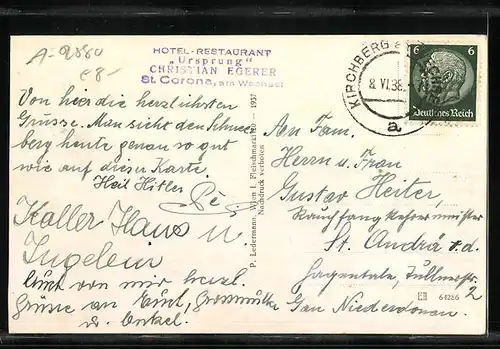 A-9580
e8-
HOTEL-RESTAURANT
„Ursprung"
CHRISTIAN EGERER
St. Corona, am Wechsel
Von hier die herzlichsten
Grüsse. Man sieht den Schnee-
berg heute genau so gut
wie auf dieser Karte.
Heil Hitler
Koller Hans u.
Ingelein
von mir herzl.
Grüsse an Grossmutter
u. Onkel.
P. Ledermann, Wien I, Fleischmarkt 20 — 1937
Nachdruck verboten
KIRCHBERG a
8. VI. 38.
a
6 6
Deutsches Reich
An Fam.
Herrn u. Frau
Gustav Heiter,
Rauchfangkehrermeister
St. Andrä v. d.
Hagentale, Tullnerstr.
2
Gau Niederdonau.
64286